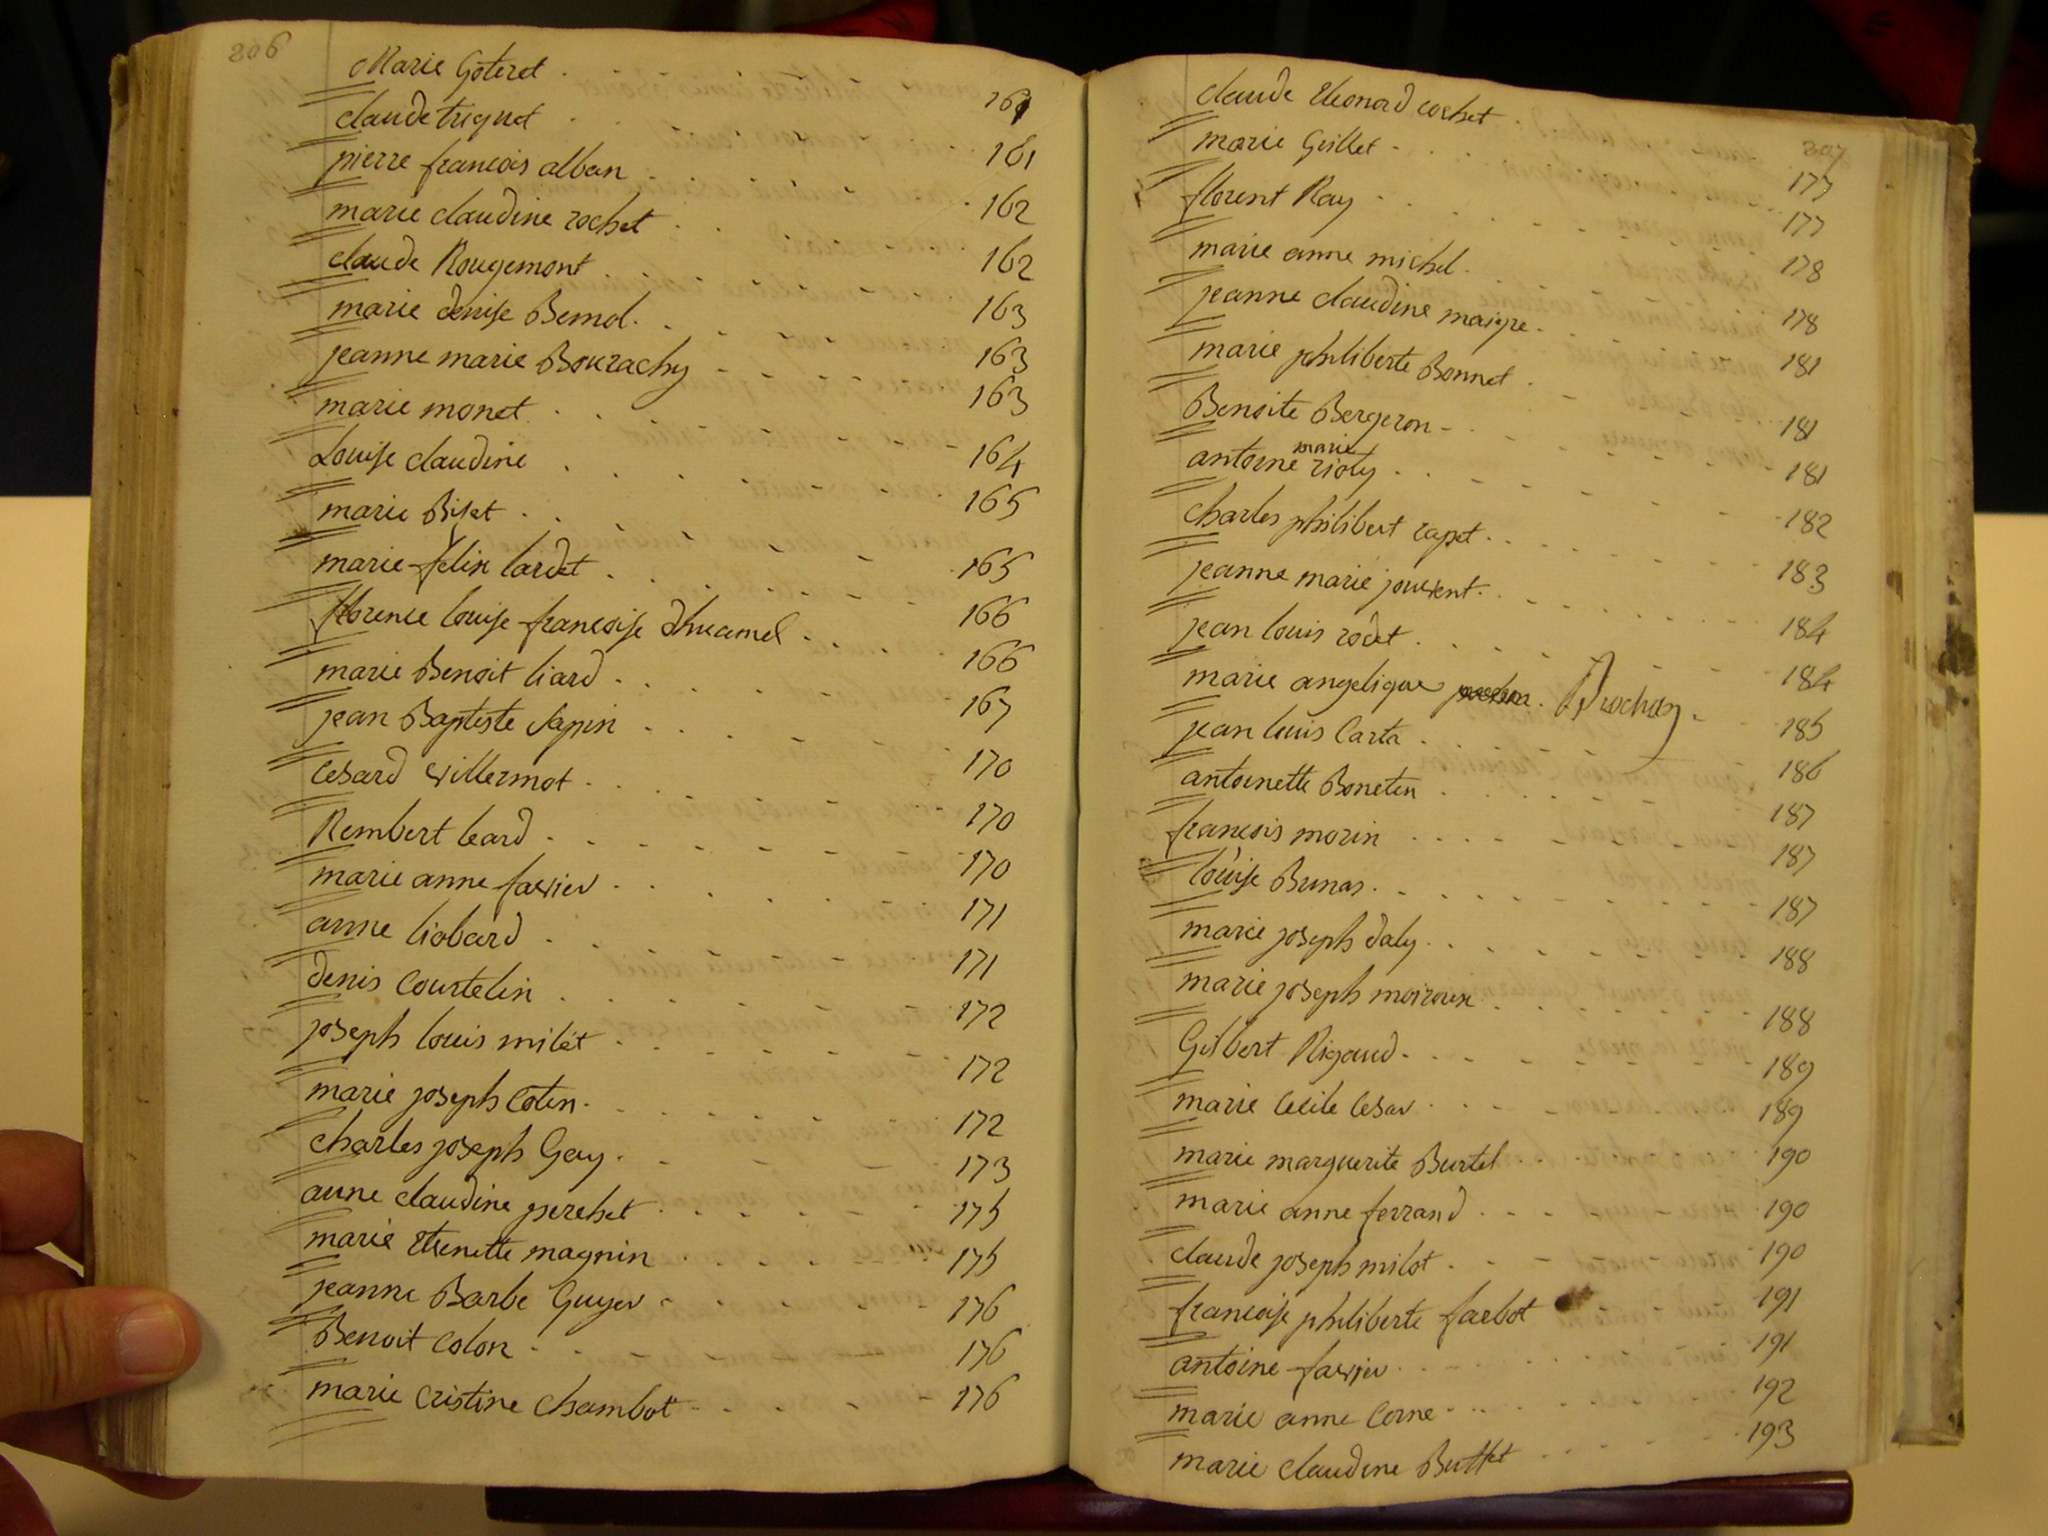 206
Marie Goteret . 161
claude triquet . 161
pierre francois alban . 162
marie claudine rochet . 162
claude Rougemont . 163
marie denise Bernol . 163
jeanne marie Bourachy 163
marie monet . 164
Louise claudine . 165
marie Biset . 165
marie felin lardet . 166
florence louise francoise Dhuamel . 166
marie Benoit liard . 167
jean Baptiste Sapin . 170
Cesard villermot . 170
Rembert leard . 170
marie anne favier . 171
anne liobard . 171
denis Courtelin . 172
joseph louis milet . 172
marie joseph Cotin . 172
charles joseph Gay . 173
anne claudine perchet . 175
marie Etienette magnin . 175
jeanne Barbe Guyer . 176
Benoit Colon . 176
marie Cristine Chambot . 176
207
claude Eleonard cochet . 177
marie Guillet . 177
florent Ray . 178
marie anne michel . 178
jeanne claudine maigre . 181
marie philiberte Bonnet . 181
Benoite Bergeron . 181
antoine marie rioly . 182
charles philibert rapet . 183
jeanne marie jouvent . 184
jean louis rodet . 184
marie angelique Brochay . 185
jean louis Carta . 186
antoinette Boneten . 187
francois morin . 187
louise Bunas . 187
marie joseph daly . 188
marie joseph moiroux . 188
Gilbert Rigaud . 189
marie Cecile Cesar . 189
marie marguerite Burtel . 190
marie anne ferrand . 190
claude joseph milot . 190
francoise philiberte farbot 191
antoine favier . 191
marie anne Corne . 192
marie claudine Buffet . 193